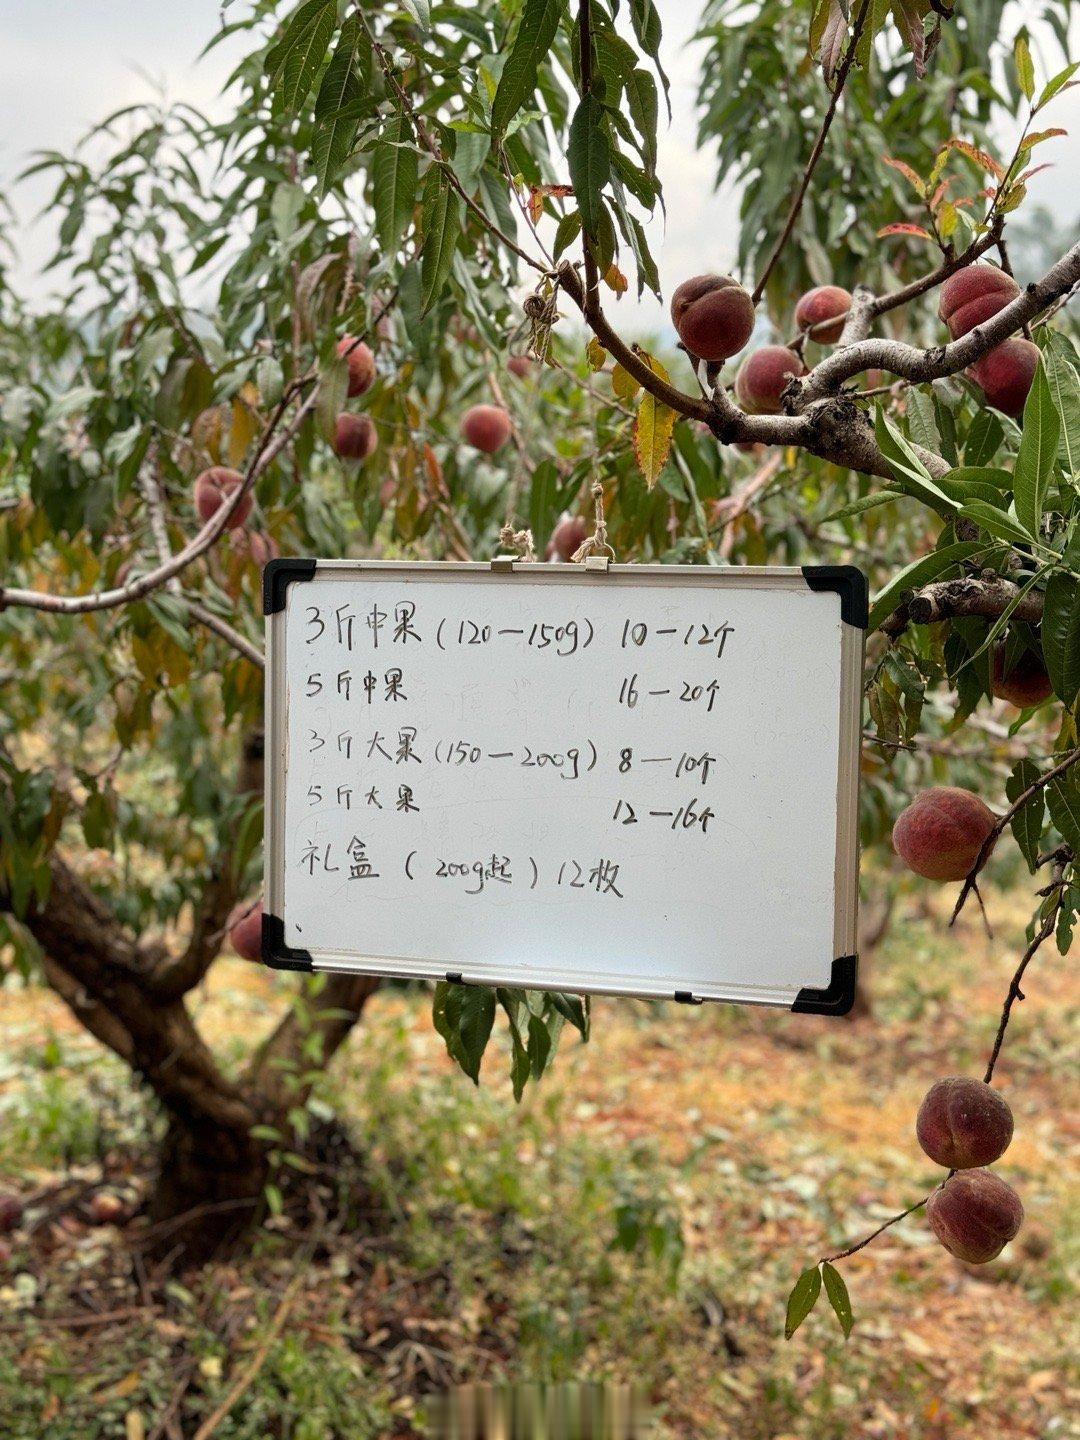 3斤中果(120—150g) 10—12个
5斤中果 16—20个
3斤大果(150—200g) 8—10个
5斤大果 12—16个
礼盒(200g起)12枚